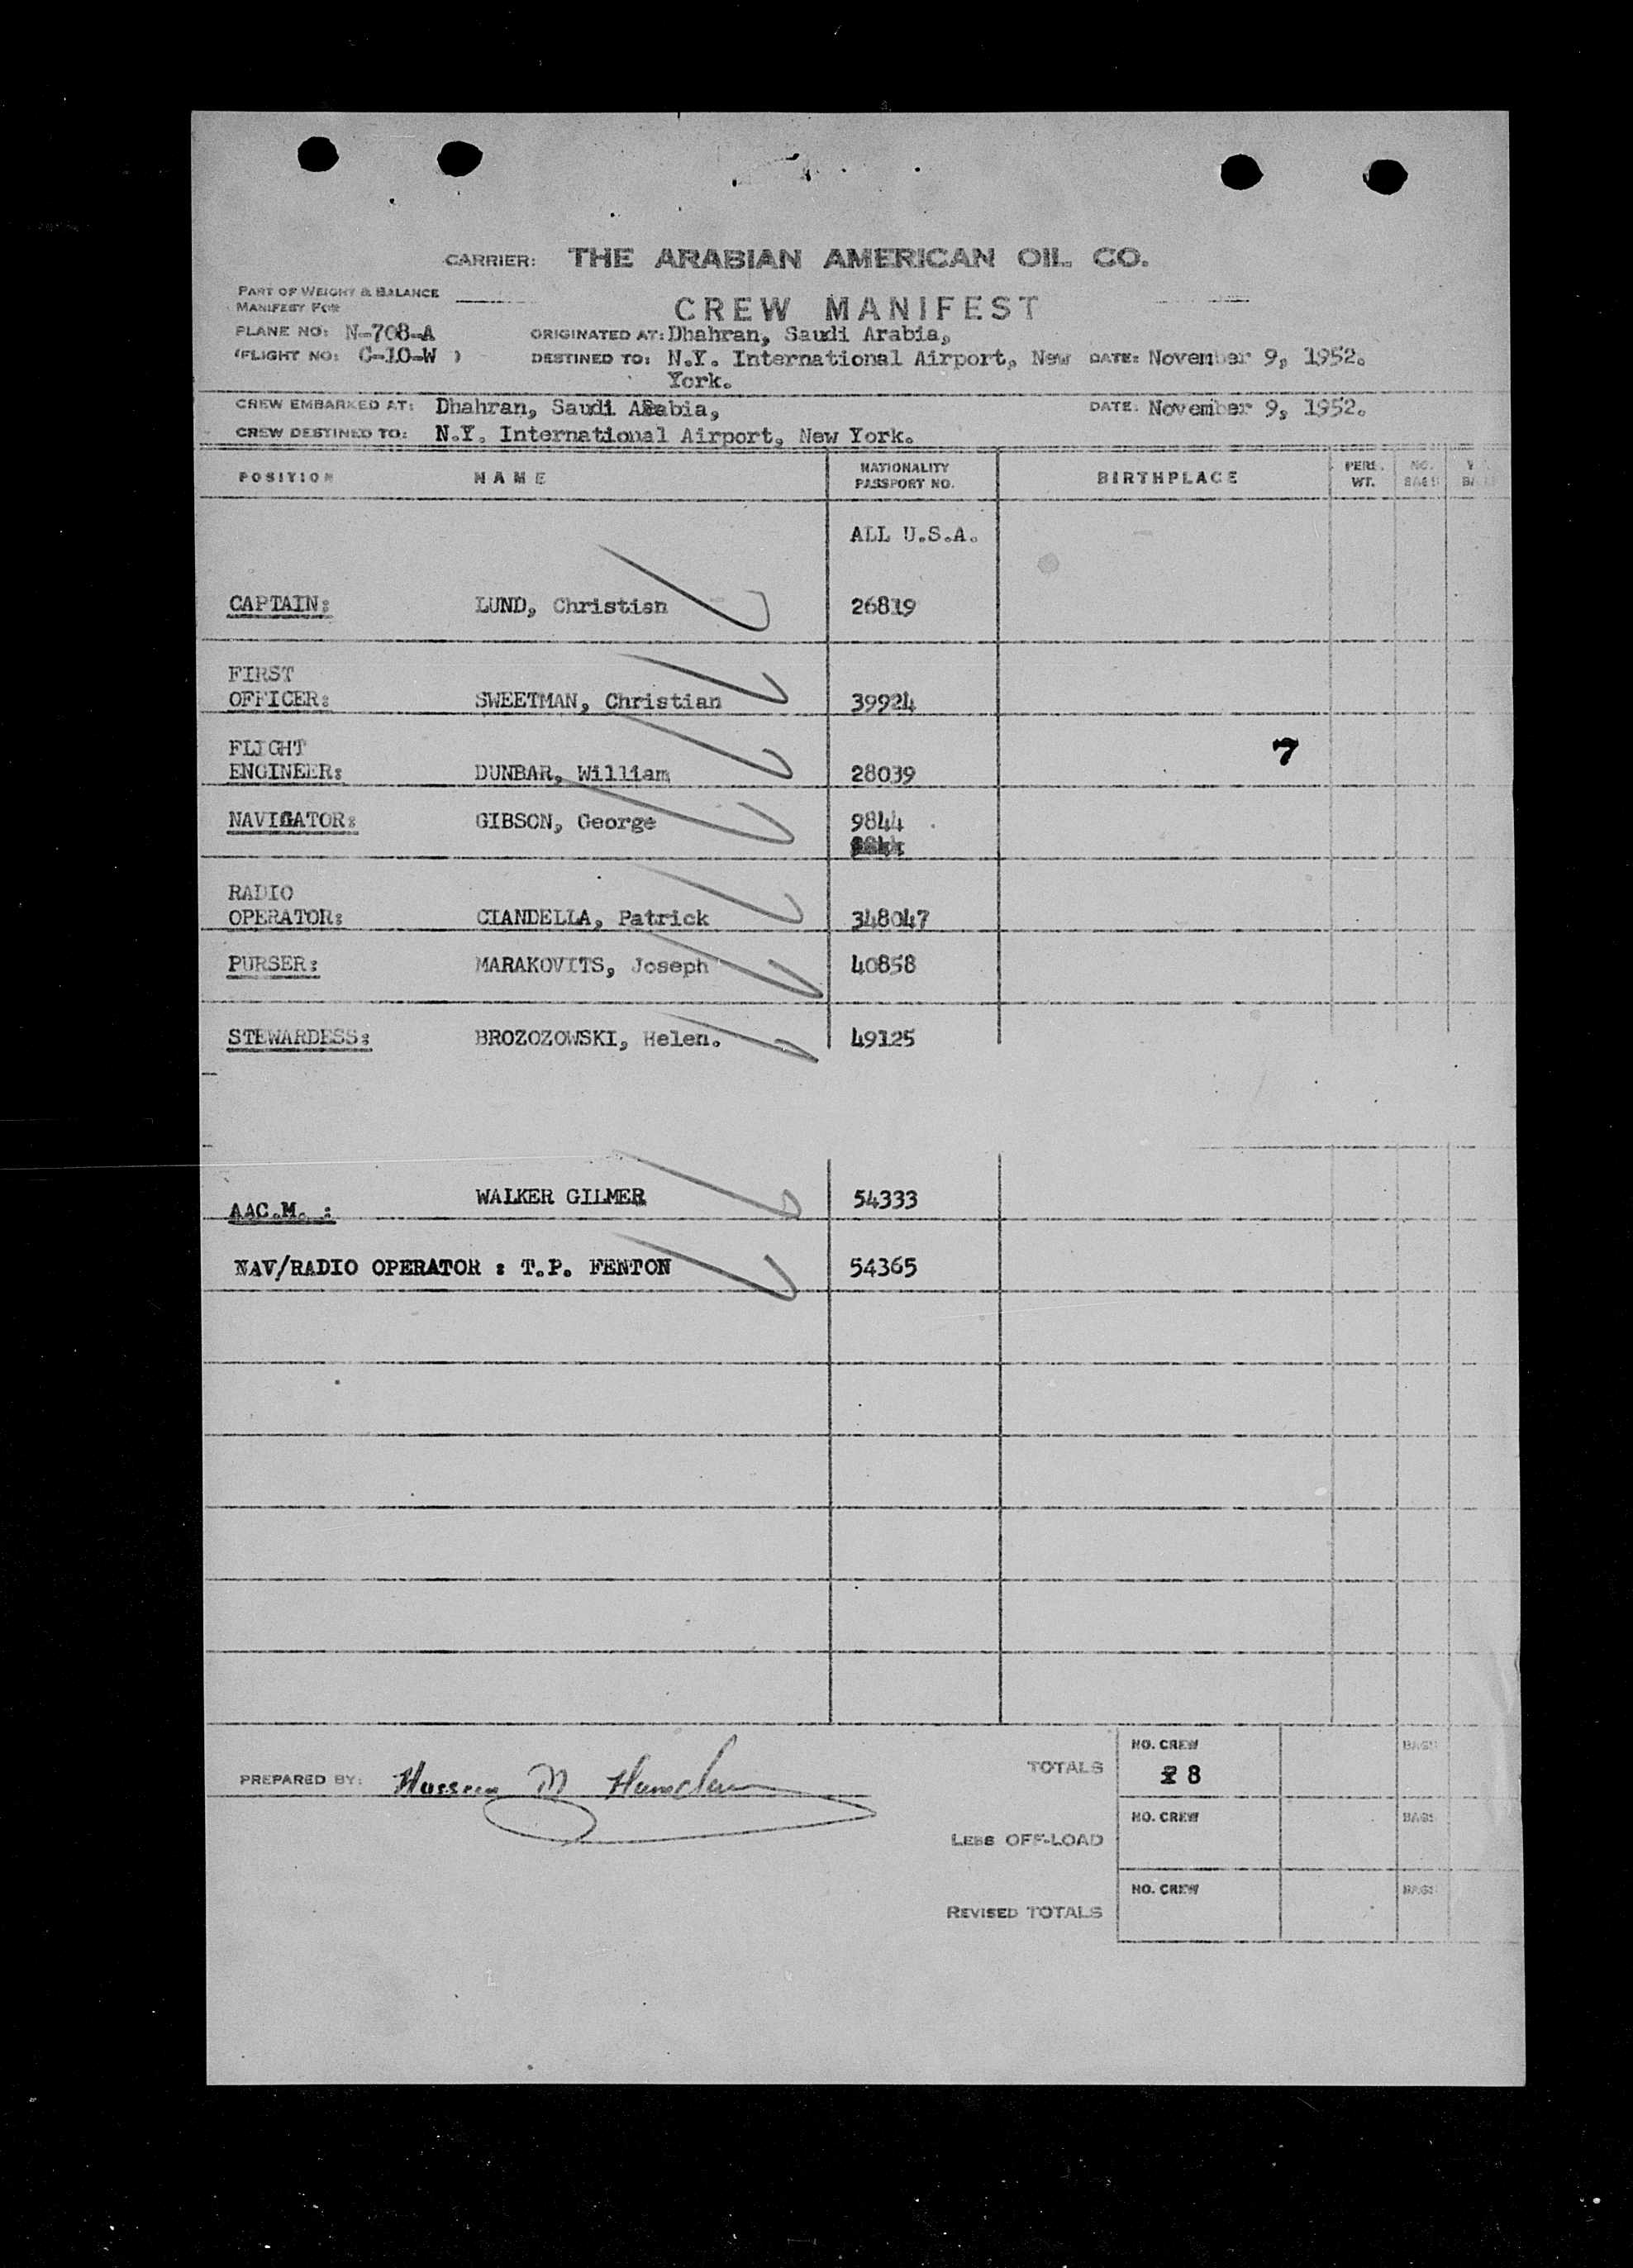 CARRIER: THE ARABIAN AMERICAN OIL CO.
PART OF WEIGHT & BALANCE
MANIFEST FOR
CREW MANIFEST
PLANE NO: N-708-A ORIGINATED AT: Dhahran, Saudi Arabia,
(FLIGHT NO: C-10-W ) DESTINED TO: N.Y. International Airport, New DATE: November 9, 1952.
York.
CREW EMBARKED AT: Dhahran, Saudi Arabia, DATE: November 9, 1952.
CREW DESTINED TO: N.Y. International Airport, New York.
POSITION NAME NATIONALITY PASSPORT NO. BIRTHPLACE PERS. WT. NO. BAGS
ALL U.S.A.
CAPTAIN: LUND, Christian 26819
FIRST
OFFICER: SWEETMAN, Christian 39924
FLIGHT
ENGINEER: DUNBAR, William 28039
7
NAVIGATOR: GIBSON, George 9844
RADIO
OPERATOR: CIANDELLA, Patrick 348047
PURSER: MARAKOVITS, Joseph 40858
STEWARDESS: BROZOZOWSKI, Helen. 49125
AAC.M. : WALKER GILMER 54333
NAV/RADIO OPERATOR : T.P. FENTON 54365
NO. CREW BAGS
PREPARED BY: TOTALS 8
NO. CREW BAGS
LESS OFF-LOAD
NO. CREW BAGS
REVISED TOTALS